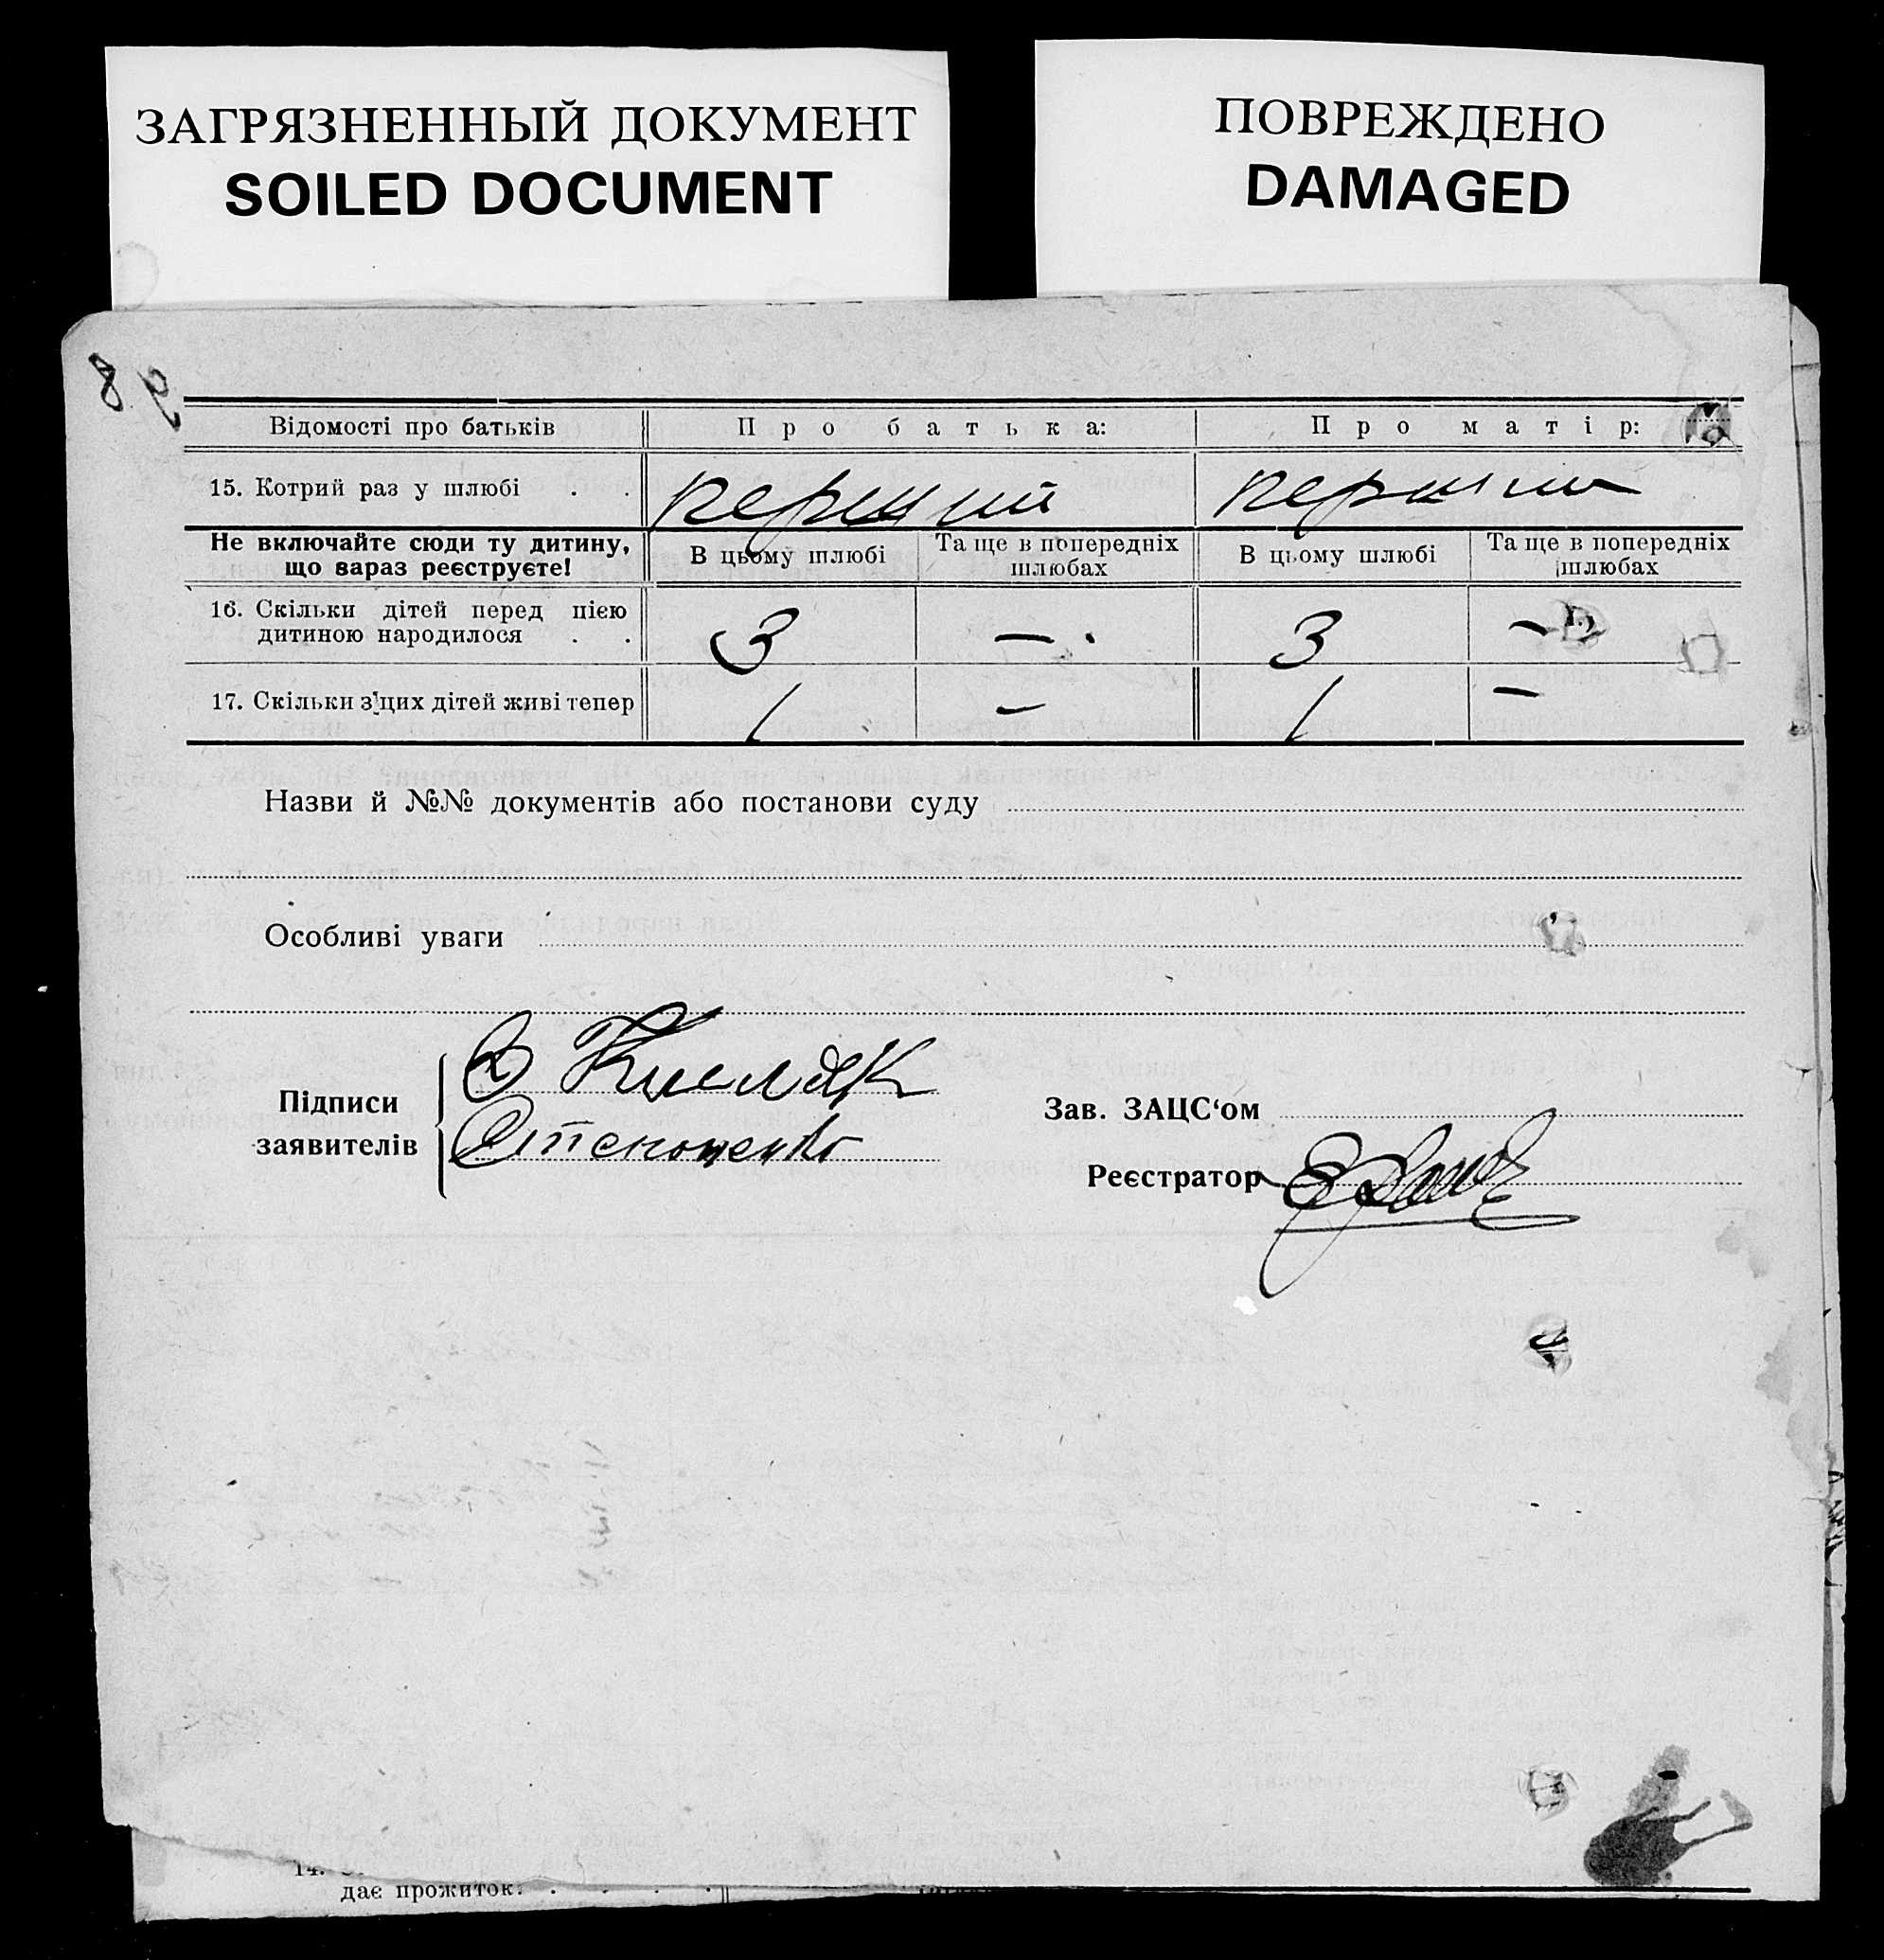 ЗАГРЯЗНЕННЫЙ ДОКУМЕНТ
SOILED DOCUMENT
ПОВРЕЖДЕНО
DAMAGED
Відомості про батьків Про батька: Про матір:
15. Котрий раз у шлюбі . . перший перший
Не включайте сюди ту дитину, що вараз реєструєте! В цьому шлюбі Та ще в попередніх шлюбах В цьому шлюбі Та ще в попередніх шлюбах
16. Скільки дітей перед цією
дитиною народилося . . 3 — 3 —
17. Скільки з цих дітей живі тепер 1 — 1 —
Назви й №№ документів або постанови суду
Особливі уваги
Підписи
заявителів
Зав. ЗАЦС‘ом
Реєстратор
14.
дає прожиток. . . . .